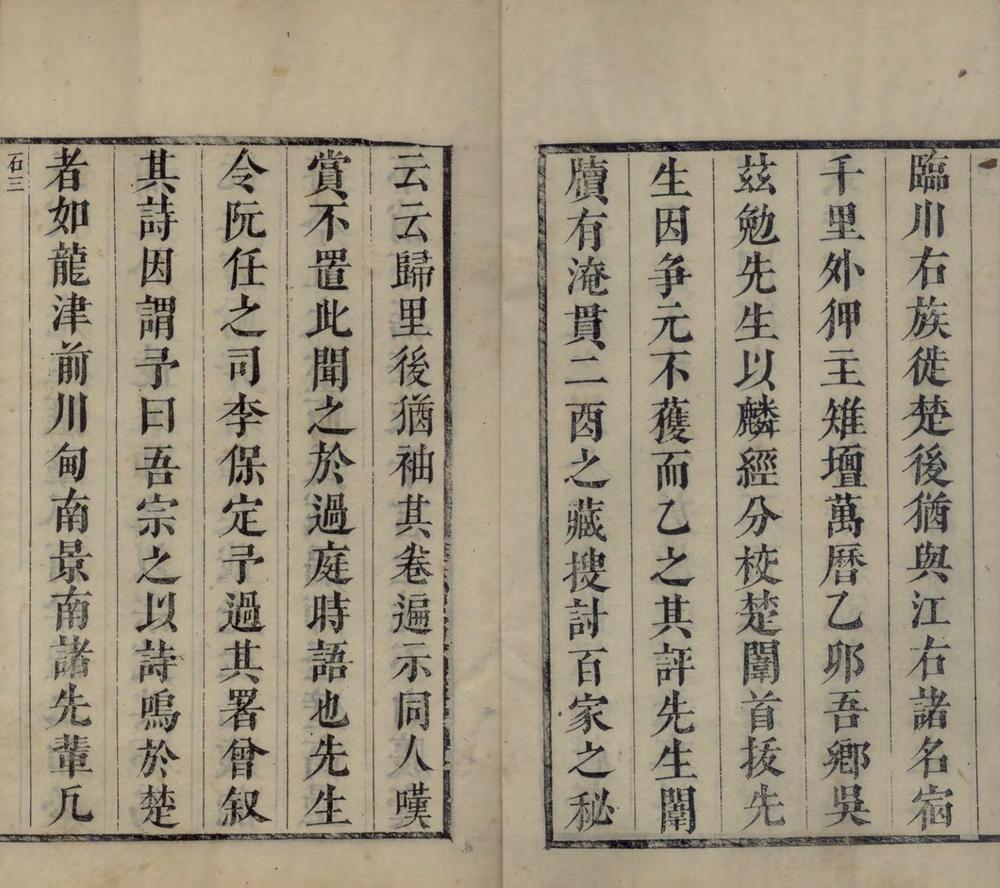 臨川右族徙楚後猶與江右諸名宿
千里外狎主雉壇萬曆乙卯吾鄉吳
茲勉先生以麟經分校楚闈首拔先
生因爭元不獲而乙之其評先生闈
牘有淹貫二酉之藏搜討百家之秘
云云歸里後猶袖其卷遍示同人嘆
賞不置此聞之於過庭時語也先生
令阮任之司李保定予過其署曾叙
其詩因謂予曰吾宗之以詩鳴於楚
者如龍津前川甸南景南諸先輩凡
石三